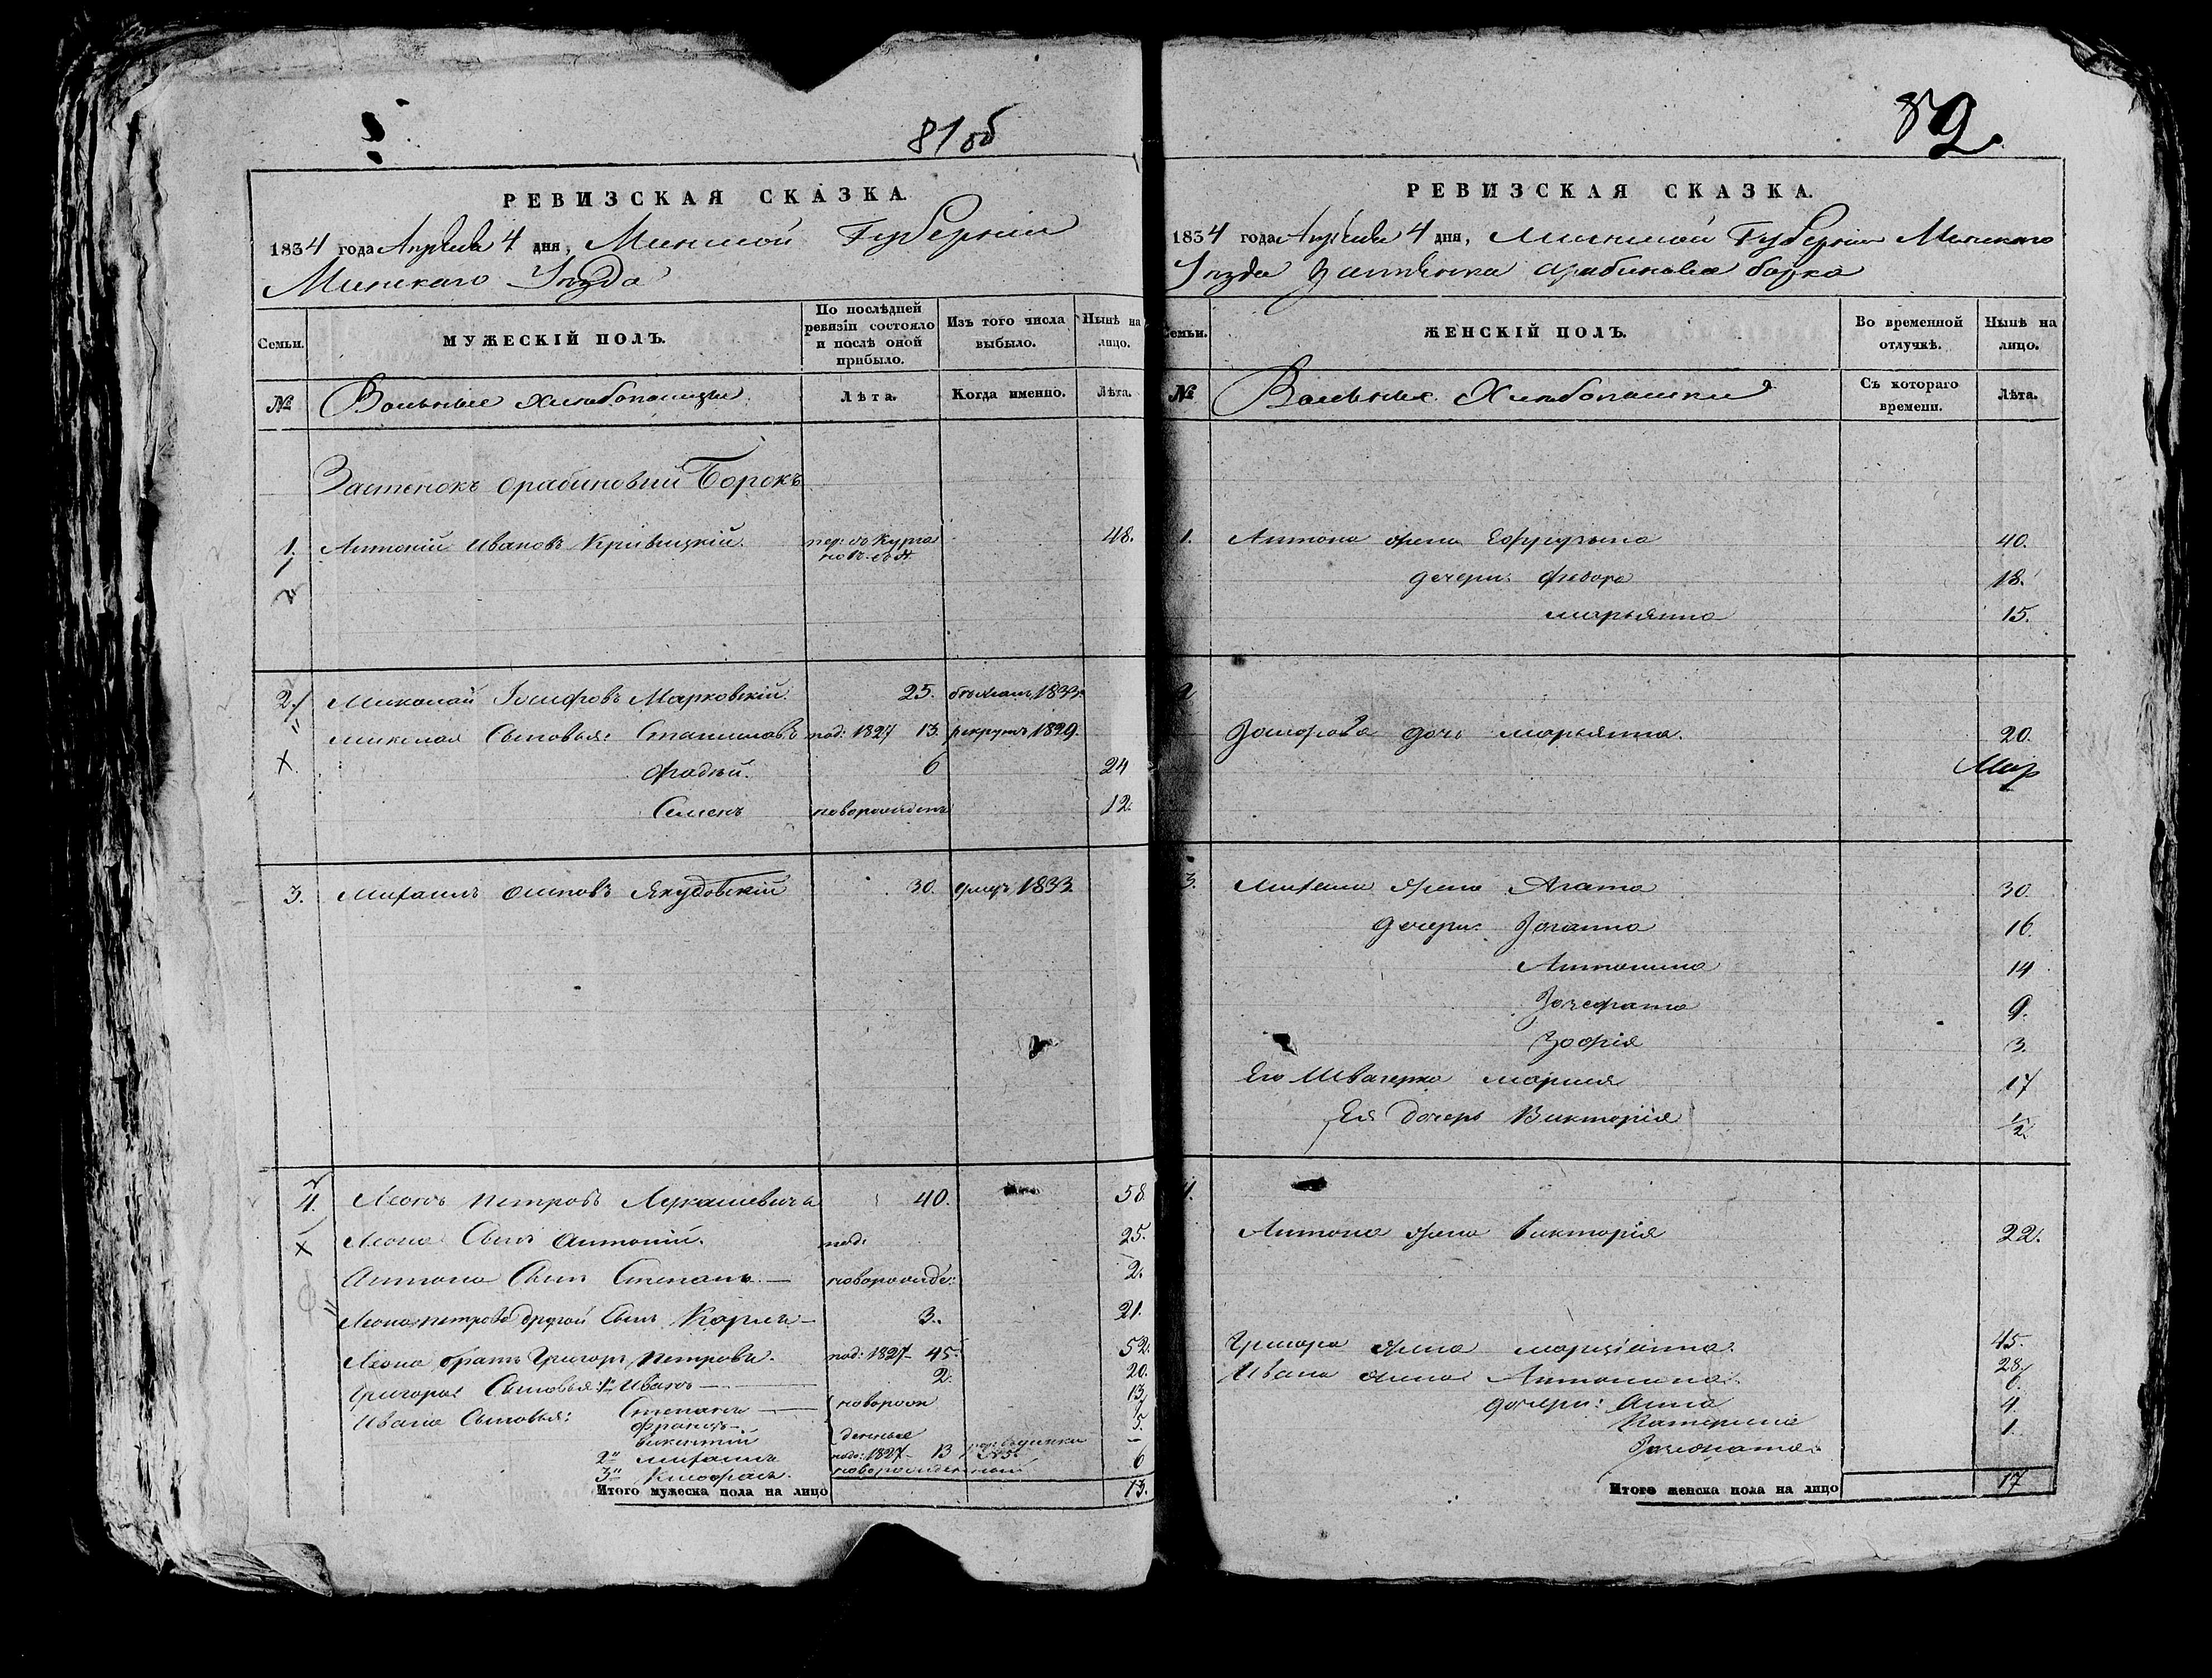 81 об
РЕВИЗСКАЯ СКАЗКА.
1834 года Апреля 4 дня, Минской Губерніи
Минскаго Уезда
Семьи.
МУЖЕСКІЙ ПОЛЪ.
По послѣдней ревизіи состояло и послѣ оной прибыло.
Изъ того числа выбыло.
Нынѣ на лицо.
№
Вольные Хлебопашцы.
Лѣта.
Когда именно.
Лѣта.
Застенокъ Орабиновый Борокъ
1. Антоній Ивановъ Кривицкій. 48.
2. Миколай Марковскій 25. 1833.
Миколая Сыновья: Станиславъ под: 1827 13. рекрутъ 1829.
Фадѣй. 6 24
Семенъ новорожденъ 12.
3. Михаилъ Осиповъ Якубовскій 30. умеръ 1833
4. Леонъ Петровъ 40. 58.
Леона Сынъ Антоній. под: 25.
Антона Сынъ Степанъ — новорожде: 2.
Леона Петрова другой Сынъ Карлъ — 3. 21.
Леона братъ Григоръ Петровъ. под: 1827 45. 52.
Григорія Сыновья: 1й Иванъ — 2. 20.
Ивана Сыновья: Степанъ — новорож 13
Францъ — 5.
Викентій денные —
2й Михаилъ под: 1827 13
3й новорожденный 6
Итого мужеска пола на лицо 13.
82
РЕВИЗСКАЯ СКАЗКА.
1834 года Апреля 4 дня, Минской Губерніи Минскаго
Уезда Застенка Орабиноваго борка
Семьи.
ЖЕНСКІЙ ПОЛЪ.
Во временной отлучкѣ.
Нынѣ на лицо.
№
Вольные Хлебопашки
Съ котораго времени.
Лѣта.
1. Антона жена 40.
дочери: 18.
Марьянна 15.
2
дочь Марьянна. 20.
3. Михаила жена Агата 30.
дочери: 16.
Антонина 14
Зофія 3.
Его Швагерка Марыя 17
Ея дочерь Викторія 1/2
4.
Антона жена Викторія 22.
Григора жена Марціанна 45.
Ивана жена Антонина 28
дочери: Анна
Катерина 4.
1.
Итого женска пола на лицо 17